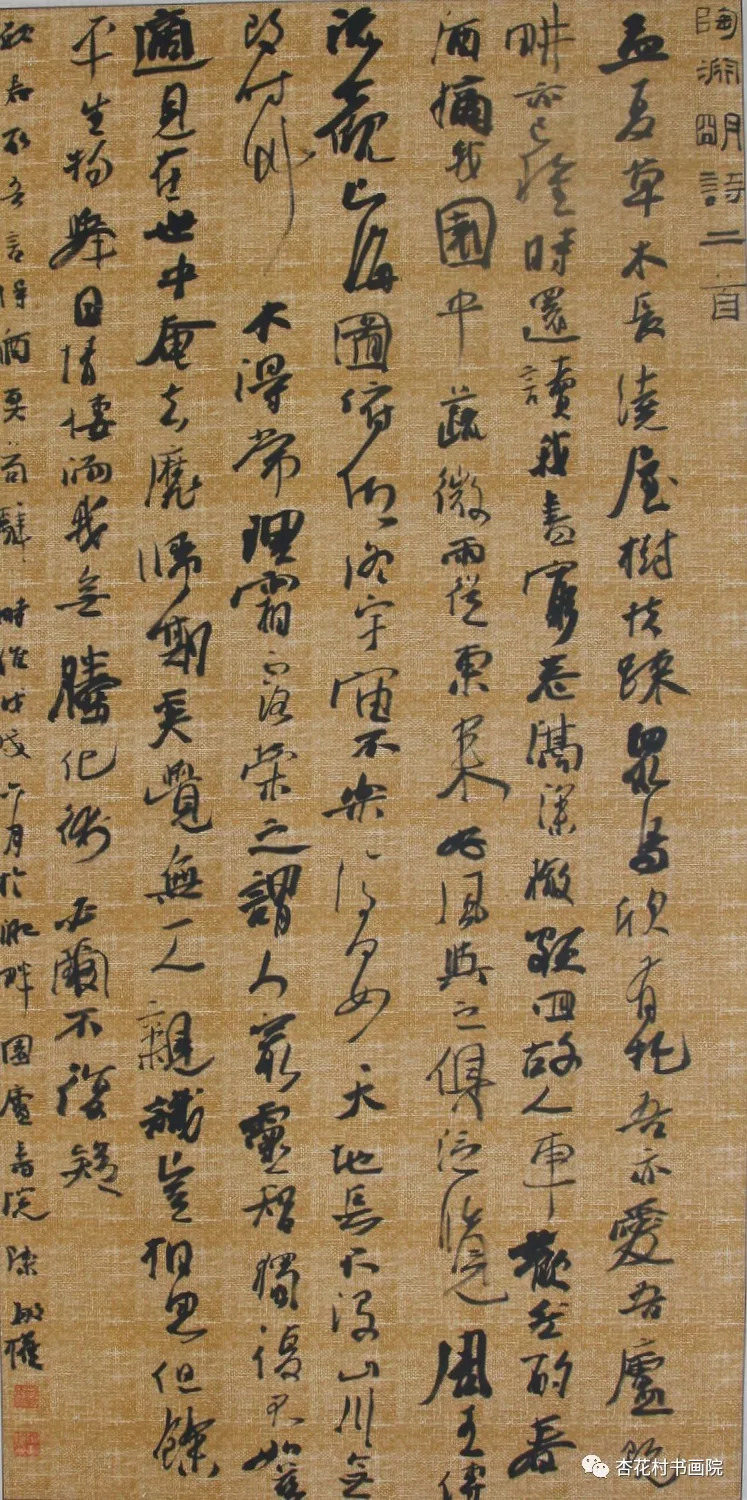 陶淵明詩二首
孟夏草木長繞屋樹扶疎眾鳥欣有托吾亦愛吾廬既
畊亦已種時還讀我書窮巷隔深轍頗回故人車歡然酌春
酒摘我園中蔬微雨從東來好風與之俱泛覽周王傳
流觀山海圖俯仰終宇宙不樂復何如天地長不沒山川無
改時艸木得常理霜露榮之謂人最靈智獨復不如茲
適見在世中奄去靡歸期奚覺無一人親識豈相思但餘
平生物舉目情悽洏我無騰化術必爾不復疑
願君取吾言得酒莫苟辭時維戊戌六月於淝畔園廬書院陳
杏花村书画院